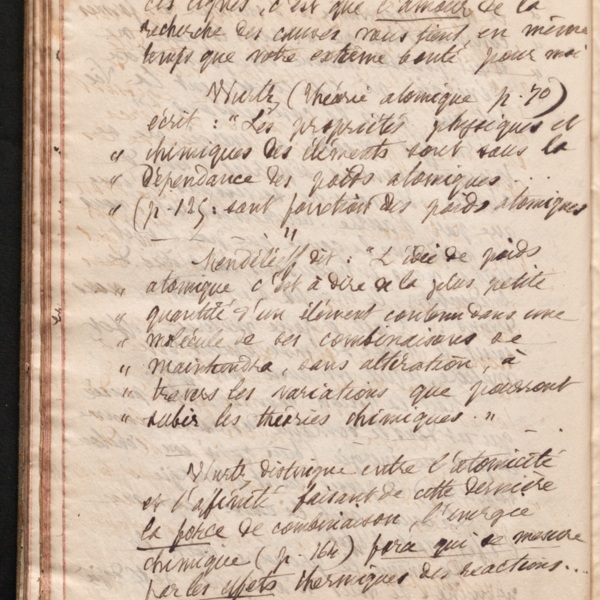 ces lignes, c'est que l'amour de la
recherche des causes vous tient en même
temps que votre extrême bonté pour moi
Wurtz (théorie atomique p. 70)
écrit : "Les propriétés physiques et
" chimiques des éléments sont sous la
" dépendance des poids atomiques ...
" (p. 125: sont fonction des poids atomiques
"
Mendéléeff dit : "L'idée de poids
" atomique c'est à dire de la plus petite
" quantité d'un élément contenu dans une
" molécule de ses combinaisons se
" maintiendra, sans altération, à
" travers les variations que pourront
" subir les théories chimiques. "
Wurtz distingue entre l'atomicité
et l'affinité faisant de cette dernière
la force de combinaison, l'énergie
chimique (p. 164) force qui se mesure
par les effets thermiques des réactions...